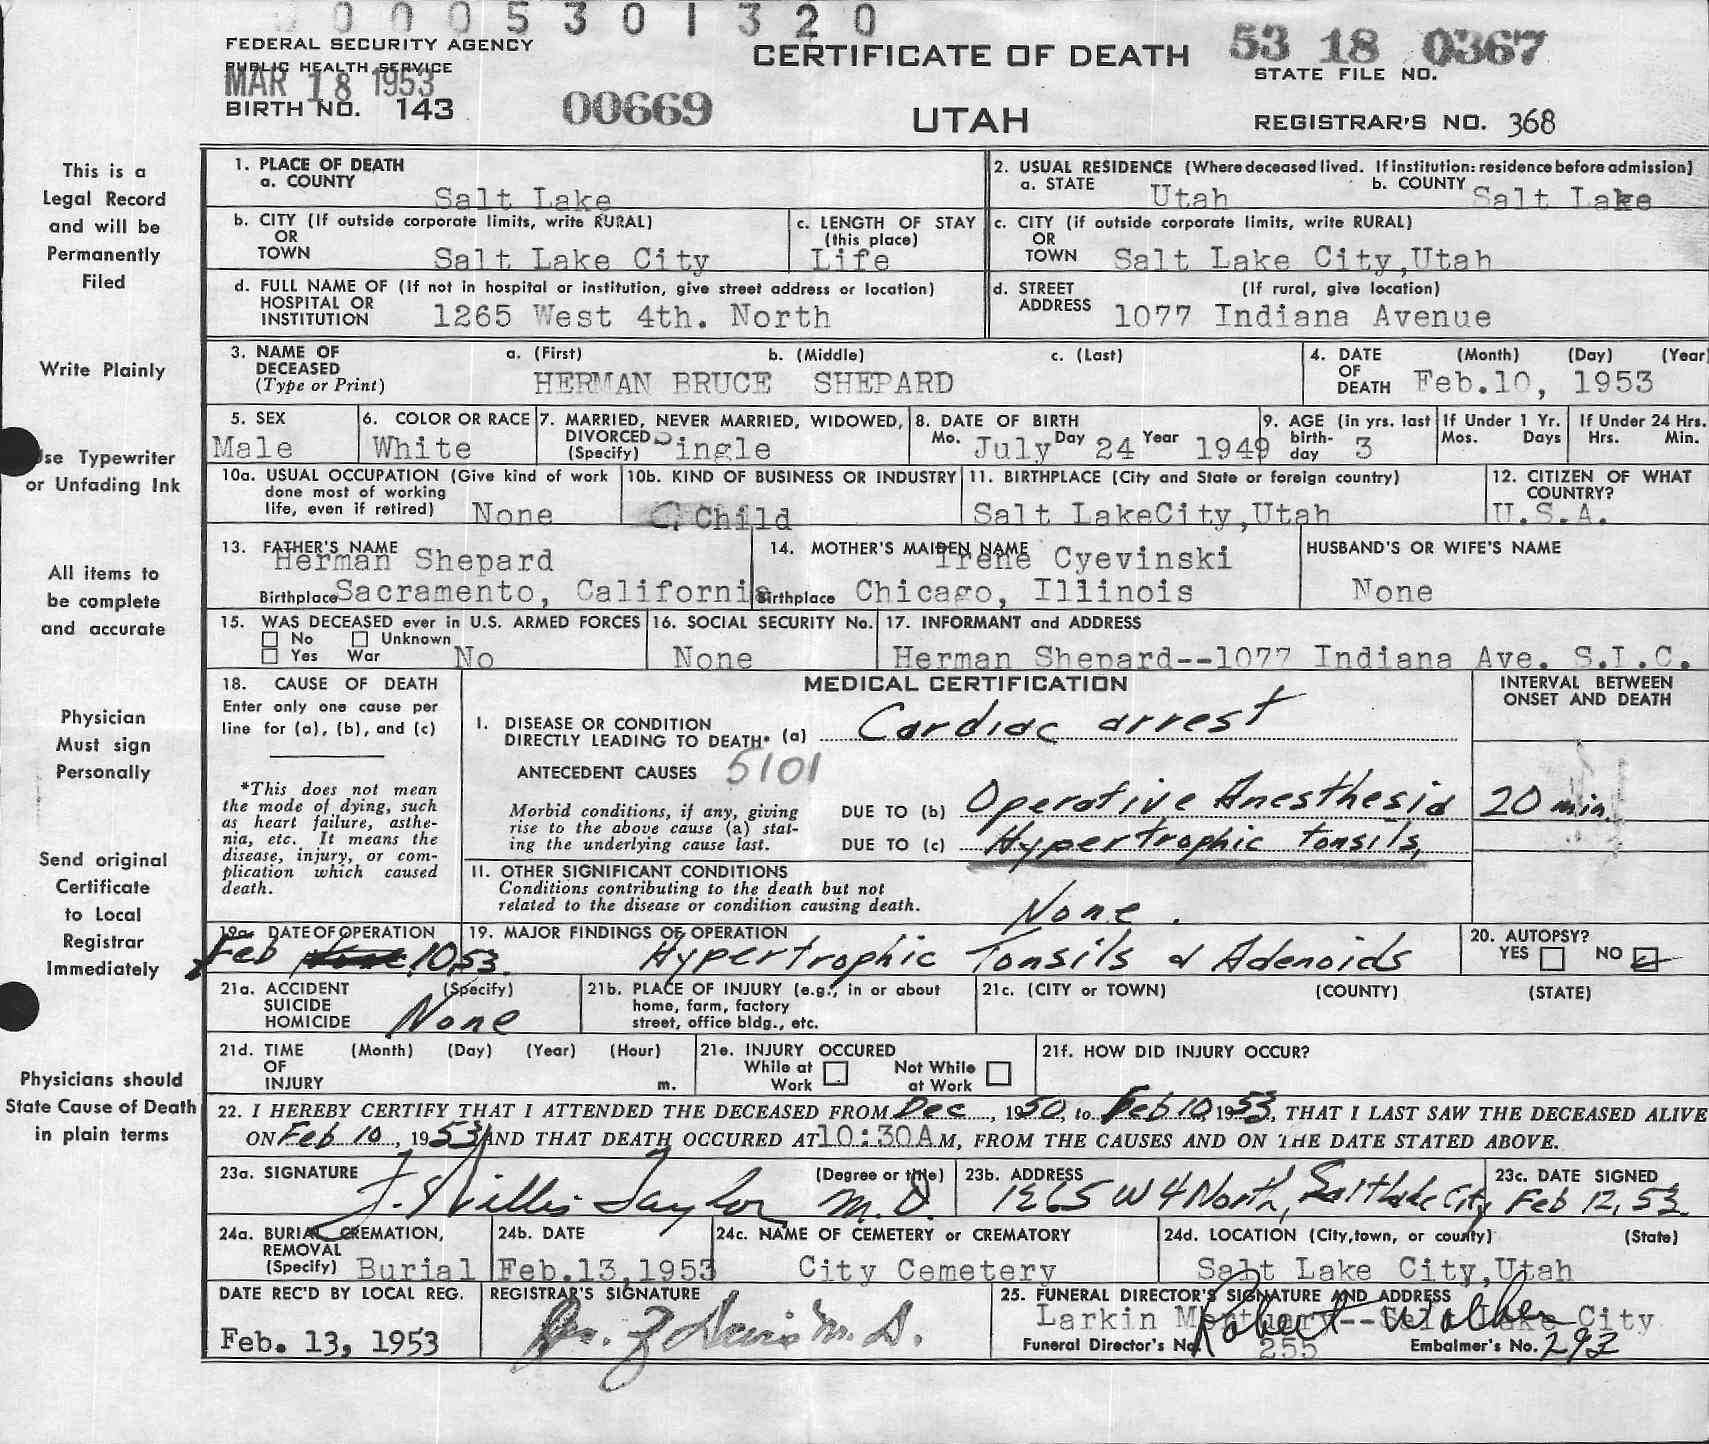 0 0 0 5 3 0 1 3 2 0
FEDERAL SECURITY AGENCY
PUBLIC HEALTH SERVICE
MAR 18 1953
BIRTH NO. 143
00669
CERTIFICATE OF DEATH
UTAH
53 18 0367
STATE FILE NO.
REGISTRAR'S NO. 368
This is a
Legal Record
and will be
Permanently
Filed
Write Plainly
Use Typewriter
or Unfading Ink
All items to
be complete
and accurate
Physician
Must sign
Personally
Send original
Certificate
to Local
Registrar
Immediately
Physicians should
State Cause of Death
in plain terms
1. PLACE OF DEATH
a. COUNTY Salt Lake
2. USUAL RESIDENCE (Where deceased lived. If institution: residence before admission)
a. STATE Utah b. COUNTY Salt Lake
b. CITY (If outside corporate limits, write RURAL)
OR
TOWN Salt Lake City
c. LENGTH OF STAY
(this place)
Life
c. CITY (if outside corporate limits, write RURAL)
OR
TOWN Salt Lake City,Utah
d. FULL NAME OF (If not in hospital or institution, give street address or location)
HOSPITAL OR
INSTITUTION 1265 West 4th. North
d. STREET (If rural, give location)
ADDRESS 1077 Indiana Avenue
3. NAME OF DECEASED (Type or Print)
a. (First) b. (Middle) c. (Last)
HERMAN BRUCE SHEPARD
4. DATE OF DEATH (Month) (Day) (Year)
Feb.10, 1953
5. SEX
Male
6. COLOR OR RACE
White
7. MARRIED, NEVER MARRIED, WIDOWED,
DIVORCED
(Specify) Single
8. DATE OF BIRTH
Mo. July Day 24 Year 1949
9. AGE (in yrs. last
birth-
day 3
If Under 1 Yr.
Mos. Days
If Under 24 Hrs.
Hrs. Min.
10a. USUAL OCCUPATION (Give kind of work
done most of working
life, even if retired) None
10b. KIND OF BUSINESS OR INDUSTRY
Child
11. BIRTHPLACE (City and State or foreign country)
Salt LakeCity,Utah
12. CITIZEN OF WHAT
COUNTRY?
U.S.A.
13. FATHER'S NAME
Herman Shepard
Birthplace Sacramento, California
14. MOTHER'S MAIDEN NAME
Irene Cyevinski
Birthplace Chicago, Illinois
HUSBAND'S OR WIFE'S NAME
None
15. WAS DECEASED ever in U.S. ARMED FORCES
No Unknown
Yes War No
16. SOCIAL SECURITY No.
None
17. INFORMANT and ADDRESS
Herman Shepard--1077 Indiana Ave. S.L.C.
18. CAUSE OF DEATH
Enter only one cause per
line for (a), (b), and (c)
*This does not mean
the mode of dying, such
as heart failure, asthe-
nia, etc. It means the
disease, injury, or com-
plication which caused
death.
MEDICAL CERTIFICATION
INTERVAL BETWEEN
ONSET AND DEATH
I. DISEASE OR CONDITION
DIRECTLY LEADING TO DEATH* (a) Cardiac arrest
ANTECEDENT CAUSES 5101
Morbid conditions, if any, giving
rise to the above cause (a) stat-
ing the underlying cause last.
DUE TO (b) Operative Anesthesia 20 min.
DUE TO (c) Hypertrophic tonsils,
II. OTHER SIGNIFICANT CONDITIONS
Conditions contributing to the death but not
related to the disease or condition causing death.
None.
19a. DATE OF OPERATION
Feb 10, 53.
19. MAJOR FINDINGS OF OPERATION
Hypertrophic Tonsils & Adenoids
20. AUTOPSY?
YES NO
21a. ACCIDENT (Specify)
SUICIDE
HOMICIDE None
21b. PLACE OF INJURY (e.g., in or about
home, farm, factory
street, office bldg., etc.
21c. (CITY or TOWN) (COUNTY) (STATE)
21d. TIME (Month) (Day) (Year) (Hour)
OF
INJURY m.
21e. INJURY OCCURED
While at Not While
Work at Work
21f. HOW DID INJURY OCCUR?
22. I HEREBY CERTIFY THAT I ATTENDED THE DECEASED FROM Dec, 1950, to Feb 10, 1953, THAT I LAST SAW THE DECEASED ALIVE
ON Feb 10, 1953 AND THAT DEATH OCCURED AT 10:30A M, FROM THE CAUSES AND ON THE DATE STATED ABOVE.
23a. SIGNATURE (Degree or title)
J. Willis Taylor M.D.
23b. ADDRESS
1265 W 4 North, Salt Lake City
23c. DATE SIGNED
Feb 12, 53.
24a. BURIAL, CREMATION,
REMOVAL
(Specify) Burial
24b. DATE
Feb.13,1953
24c. NAME OF CEMETERY or CREMATORY
City Cemetery
24d. LOCATION (City,town, or county) (State)
Salt Lake City,Utah
DATE REC'D BY LOCAL REG.
Feb. 13, 1953
REGISTRAR'S SIGNATURE
M.D.
25. FUNERAL DIRECTOR'S SIGNATURE AND ADDRESS
Larkin Mortuary--Salt Lake City
Robert Walker
Funeral Director's No. 255 Embalmer's No. 293